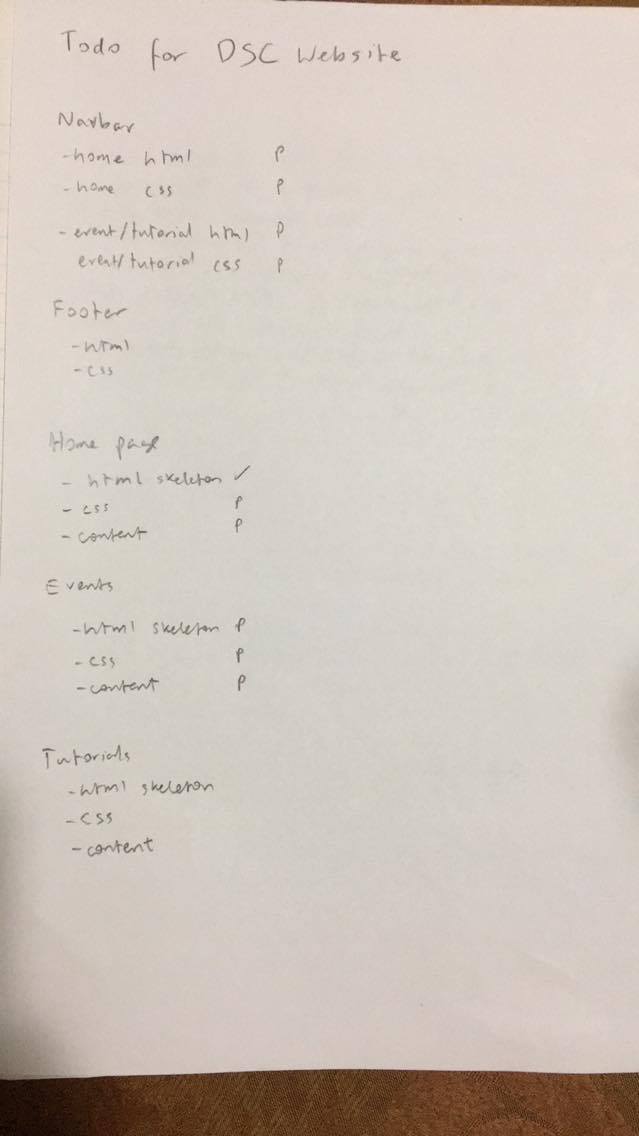 Todo for DSC Website
Navbar
- home html P
- home css P
- event/tutorial html P
event/tutorial css P
Footer
- html
- css
Home page
- html skeleton ✓
- css P
- content P
Events
- html skeleton P
- css P
- content P
Tutorials
- html skeleton
- css
- content